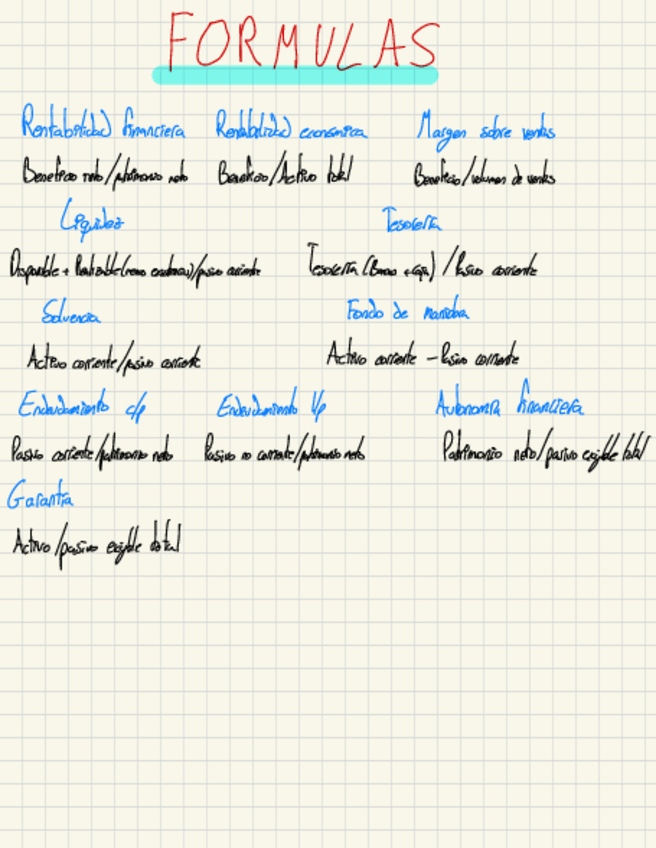 FORMULAS
Rentabilidad financiera Rentabilidad economica Margen sobre ventas
Beneficio neto/patrimonio neto Beneficio/Activo total Beneficio/volumen de ventas
Liquidez Tesorería
Disponible + Realizable (menos existencias)/pasivo corriente Tesorería (Banco + caja) / Pasivo corriente
Solvencia Fondo de maniobra
Activo corriente/pasivo corriente Activo corriente - Pasivo corriente
Endeudamiento c/p Endeudamiento l/p Autonomía financiera
Pasivo corriente/patrimonio neto Pasivo no corriente/patrimonio neto Patrimonio neto/pasivo exigible total
Garantía
Activo/pasivo exigible total